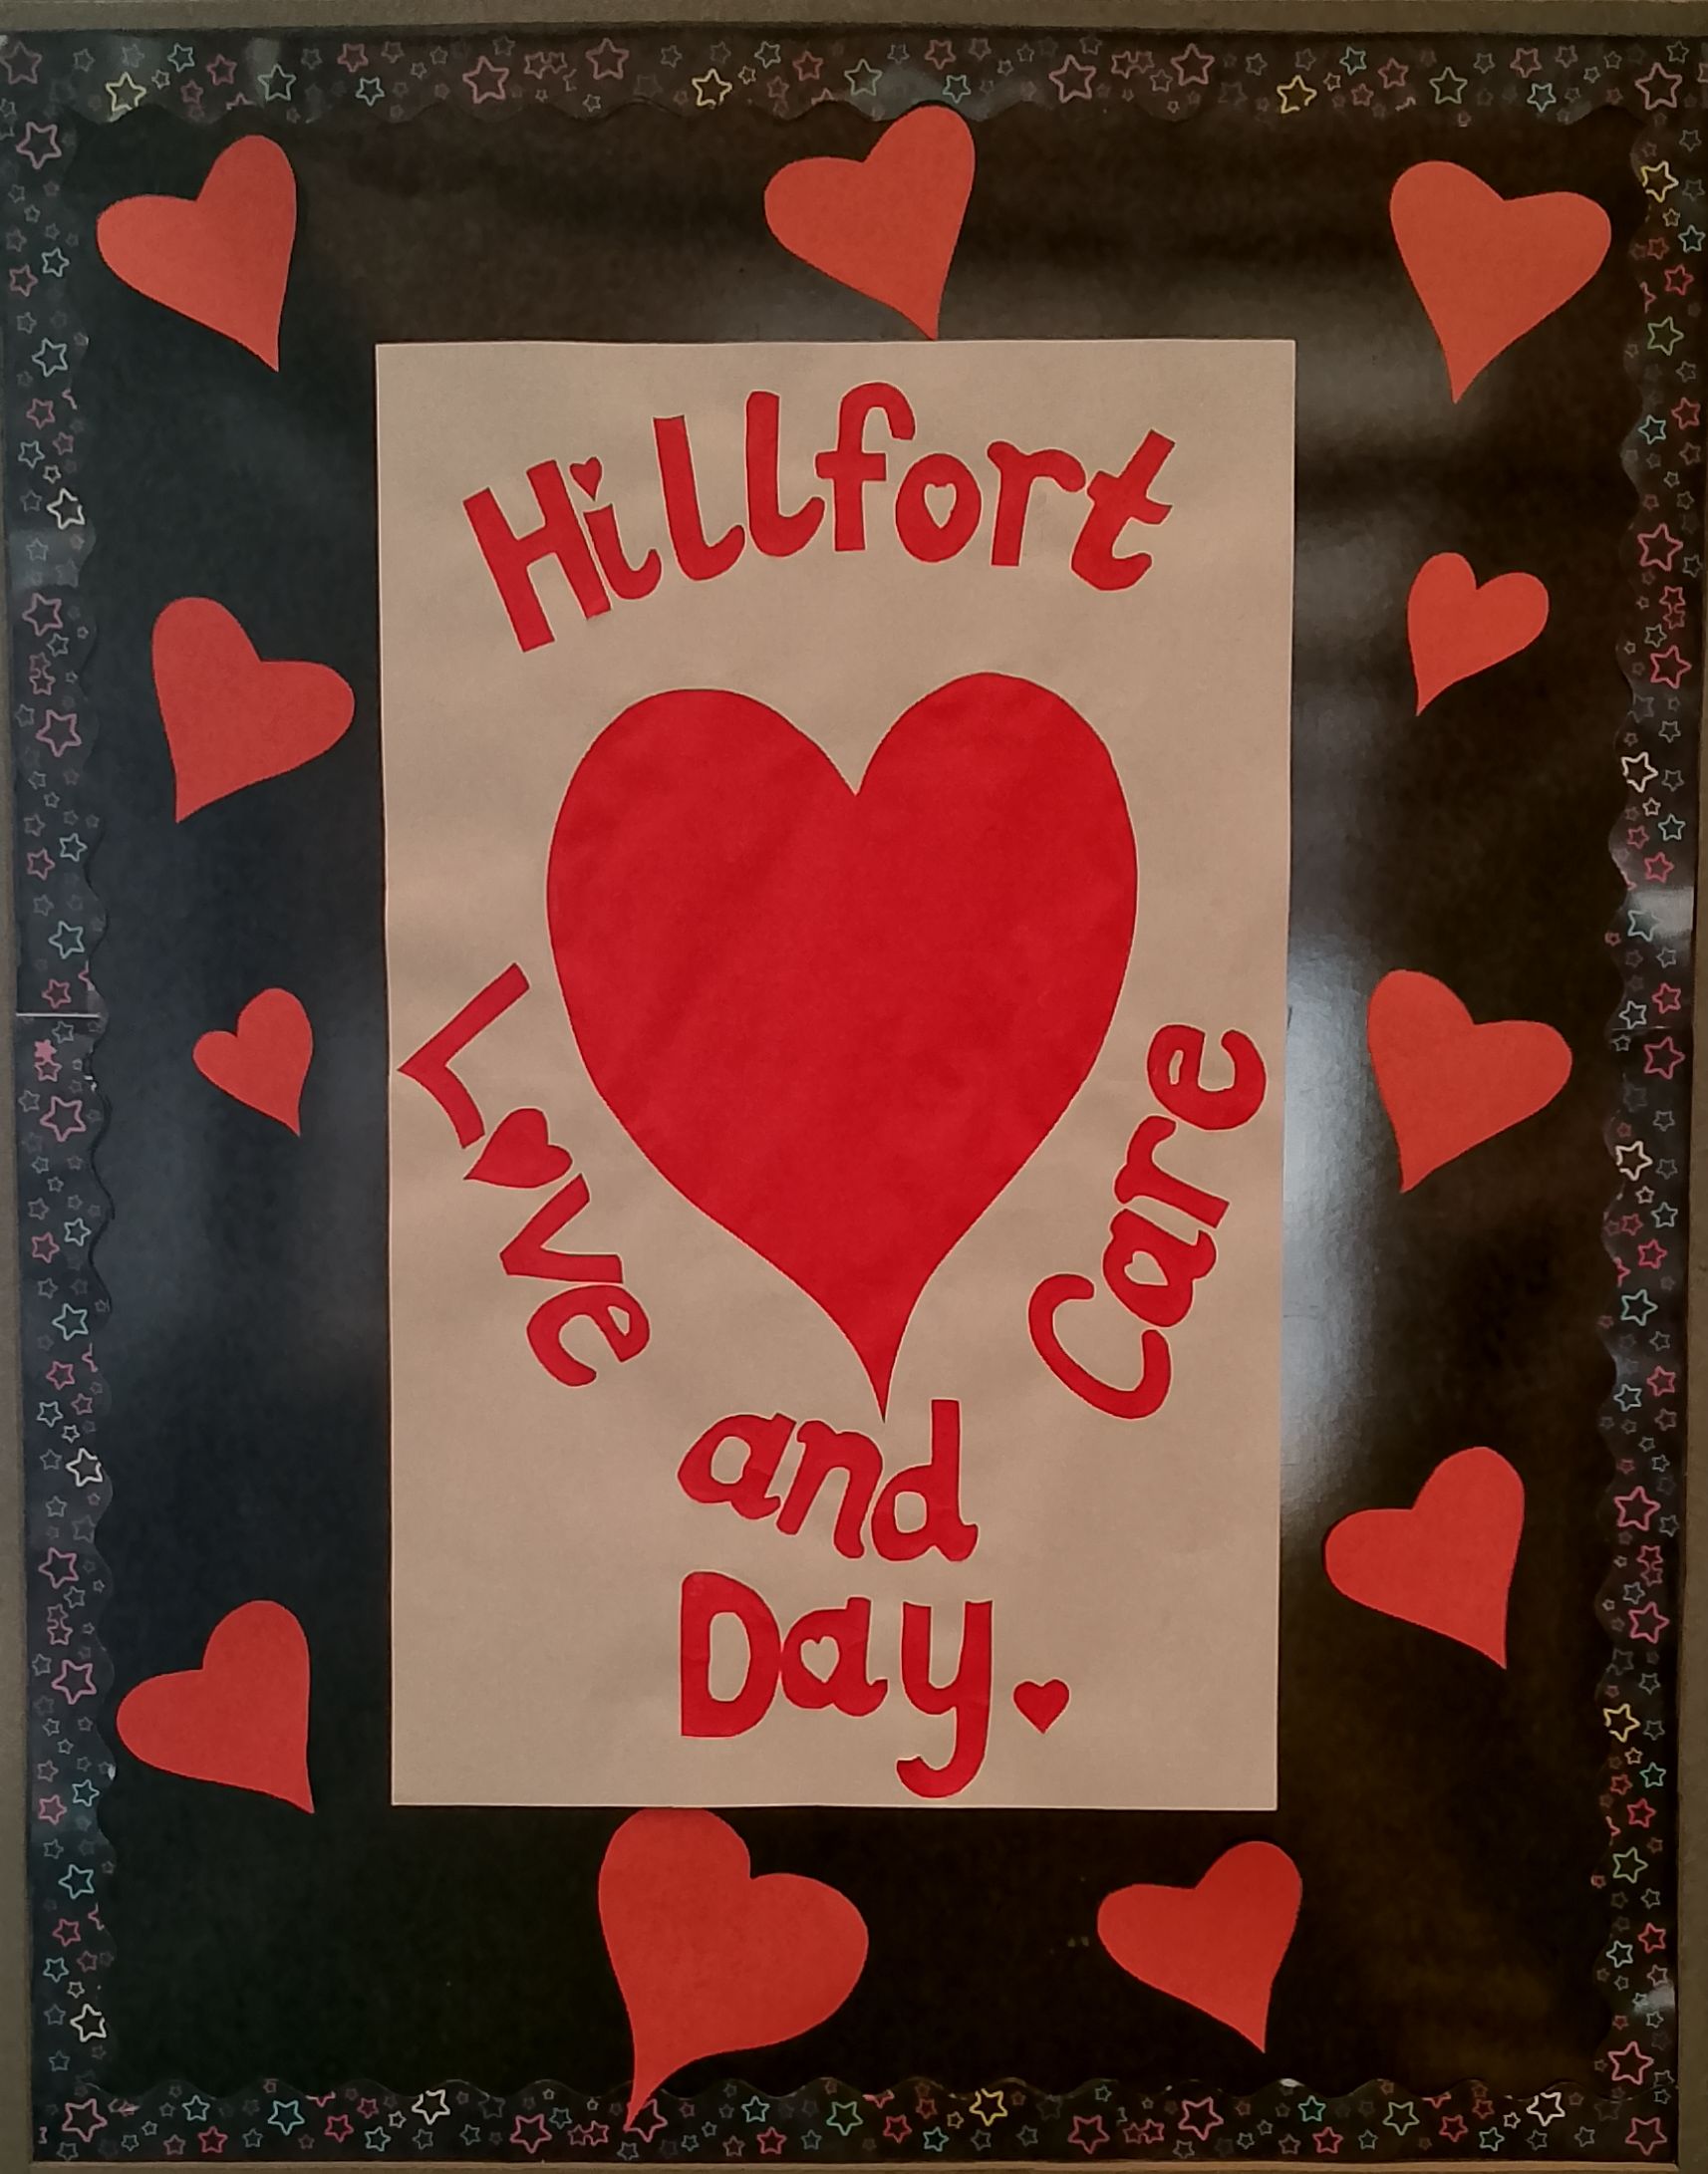 Hillfort
Love
and
Care
Day.